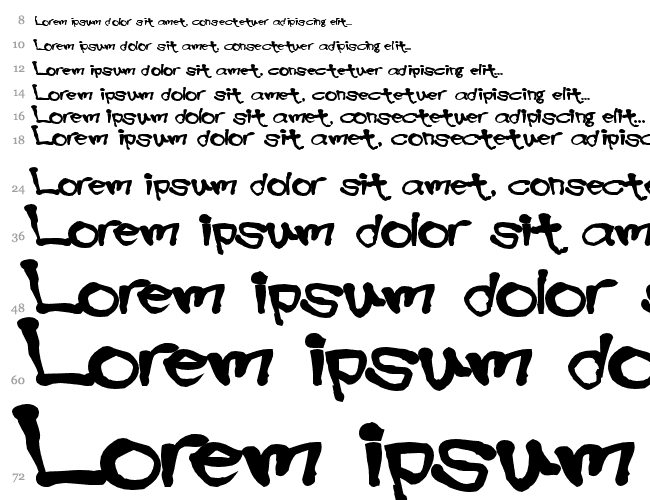 8 Lorem ipsum dolor sit amet, consectetuer adipiscing elit...
10 Lorem ipsum dolor sit amet, consectetuer adipiscing elit...
12 Lorem ipsum dolor sit amet, consectetuer adipiscing elit...
14 Lorem ipsum dolor sit amet, consectetuer adipiscing elit...
16 Lorem ipsum dolor sit amet, consectetuer adipiscing elit...
18 Lorem ipsum dolor sit amet, consectetuer adipisc
24 Lorem ipsum dolor sit amet, consecte
36 Lorem ipsum dolor sit am
48 Lorem ipsum dolor s
60 Lorem ipsum do
72 Lorem ipsum